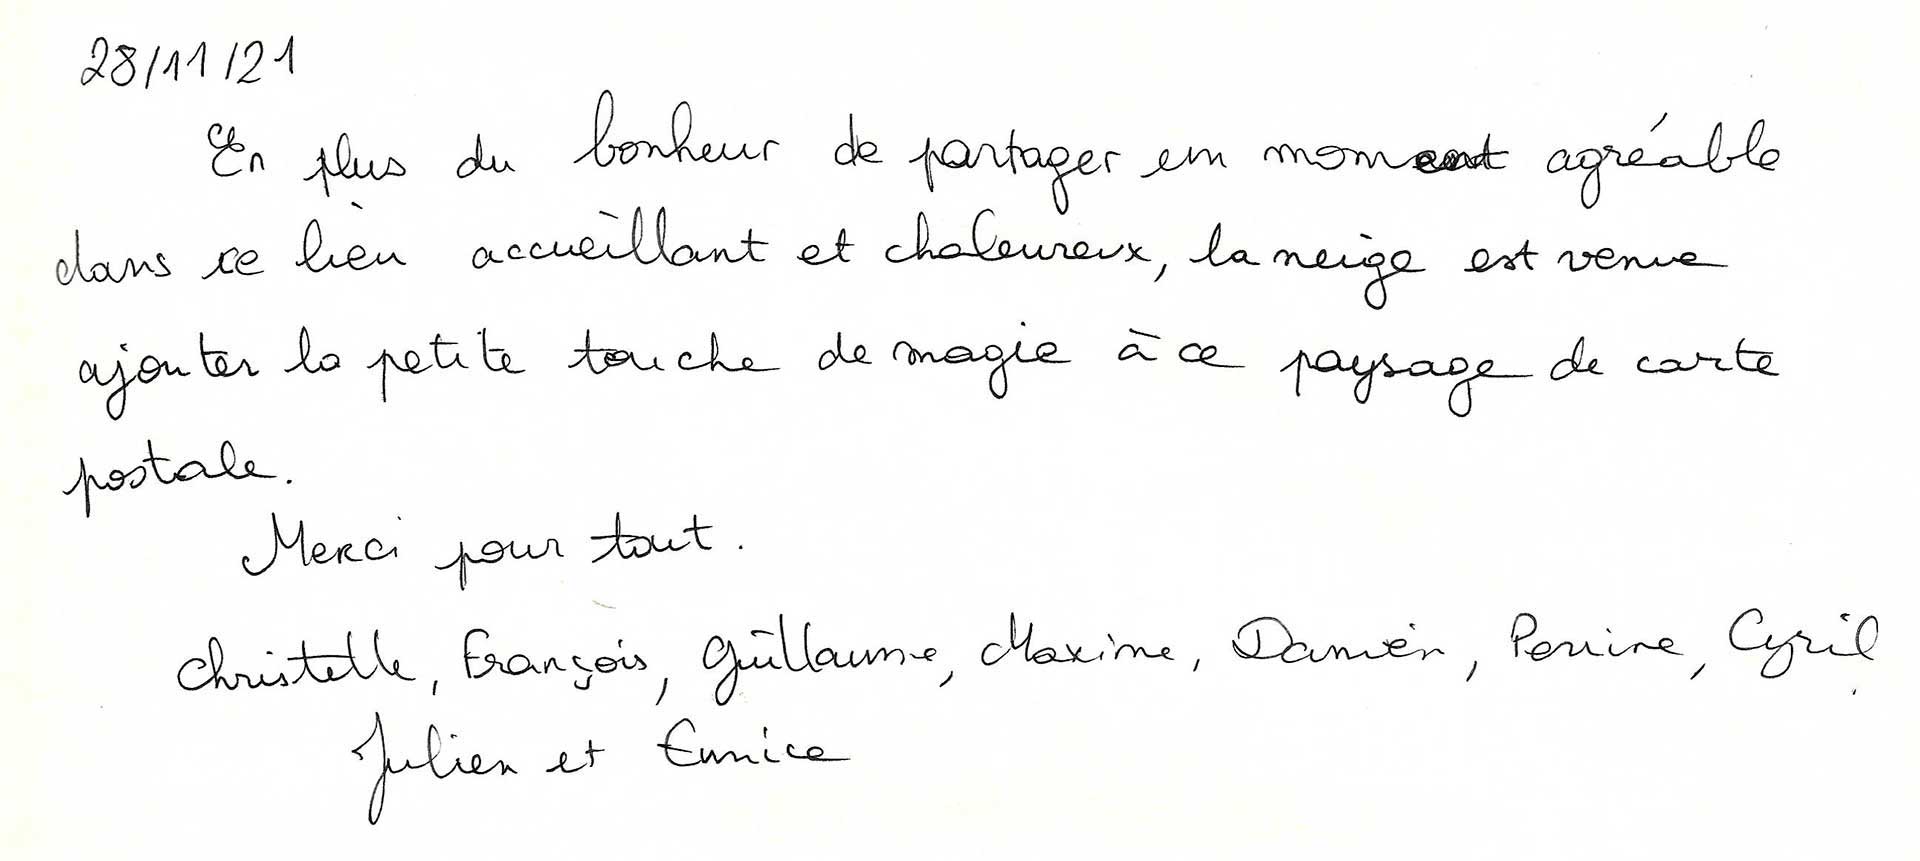 28/11/21
En plus du bonheur de partager un moment agréable
dans ce lieu accueillant et chaleureux, la neige est venue
ajouter la petite touche de magie à ce paysage de carte
postale.
Merci pour tout.
Christelle, François, Guillaume, Maxime, Damien, Perrine, Cyril
Julien et Eunice